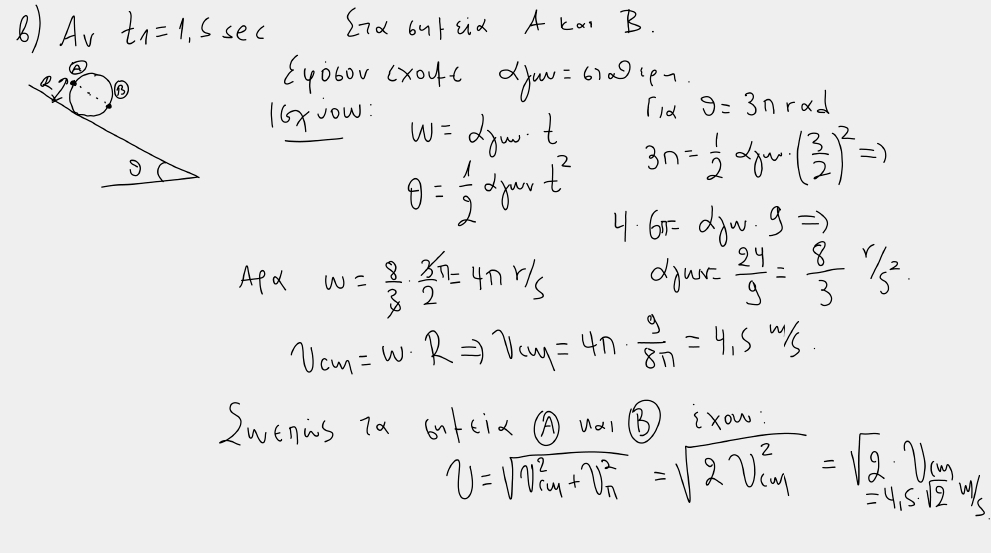 β) Αν t1=1,5 sec Στα σημεία Α και Β.
Εφόσον έχουμε αγων = σταθερη.
Ισχύουν:
Α
R
Β
θ
ω = αγων · t
θ = 1/2 αγων t²
Για θ = 3π rad
3π = 1/2 αγων · (3/2)² =>
4 · 6π = αγων · 9 =>
αγων = 24/9 = 8/3 r/s².
Άρα ω = 8/3 · 3π/2 = 4π r/s
υcm = ω · R => υcm = 4π · 9/8π = 4,5 m/s.
Συνεπώς τα σημεία Α και Β έχουν:
υ = √(υ²cm + υ²π) = √(2 υcm²) = √2 · υcm
= 4,5 · √2 m/s.